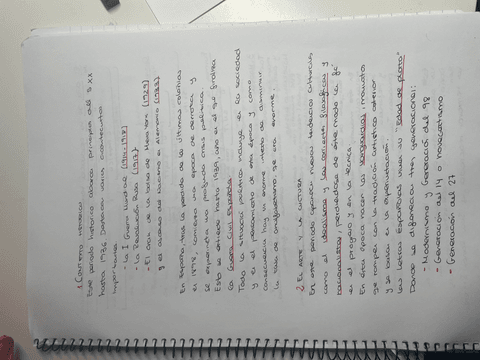 1. Contexto histórico
Este periodo histórico abarca principios del S. XX
hasta 1936. Destacan varios acontecimientos
importantes:
- La I Guerra Mundial (1914-1918)
- La Revolución Rusa (1917)
- El crack de la bolsa de Nueva York (1929)
y el ascenso del nazismo en Alemania (1933)
En España, tras la pérdida de las últimas colonias
en 1898, comienza una época de derrota y
se experimenta una profunda crisis política
Esto se extiende hasta 1939, año en el que finaliza
la Guerra Civil Española.
Todo la situación política influye en la sociedad
y en el pensamiento de esta época y como
consecuencia hay un enorme intento de disminuir
la tasa de analfabetismo, que era enorme.
2. El arte y la cultura
En este periodo aparecen nuevas tendencias culturales
como el idealismo y las corrientes filosóficas y
racionalistas, perdiendose de este modo la fé
en el progreso y en la técnica.
En esta época nacen las vanguardias, movimientos
que rompen con la tradición artística anterior
y se basan en la experimentación.
Las letras Españolas viven su "Edad de plata"
Donde se diferencian tres generaciones:
- Modernismo y Generación del 98
- Generación del 14 o novecentismo
- Generación del 27